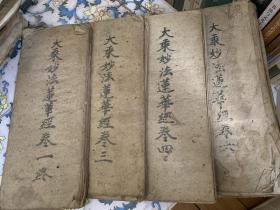 大乘妙法蓮華經卷一卷
大乘妙法蓮華經卷三
大乘妙法蓮華經卷四
大乘妙法蓮華經卷六